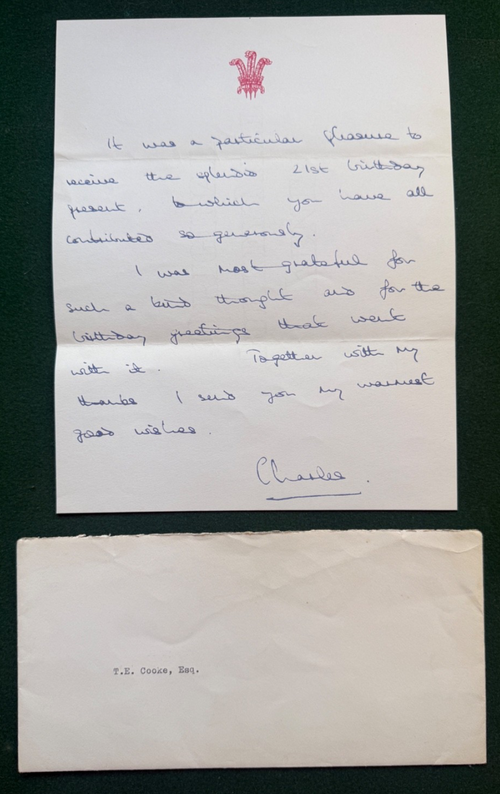 It was a particular pleasure to
receive the splendid 21st birthday
present, to which you have all
contributed so generously.
I was most grateful for
such a kind thought and for the
birthday greetings that went
with it. Together with my
thanks I send you my warmest
good wishes.
Charles.
T.E. Cooke, Esq.